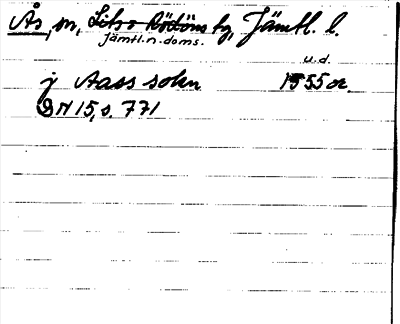 Ås, sn, Lits o Rödöns tg, Jämtl. l.
Jämtl. n. doms.
u.d.
j Aass sokn 1555 or.
DN 15, s. 771